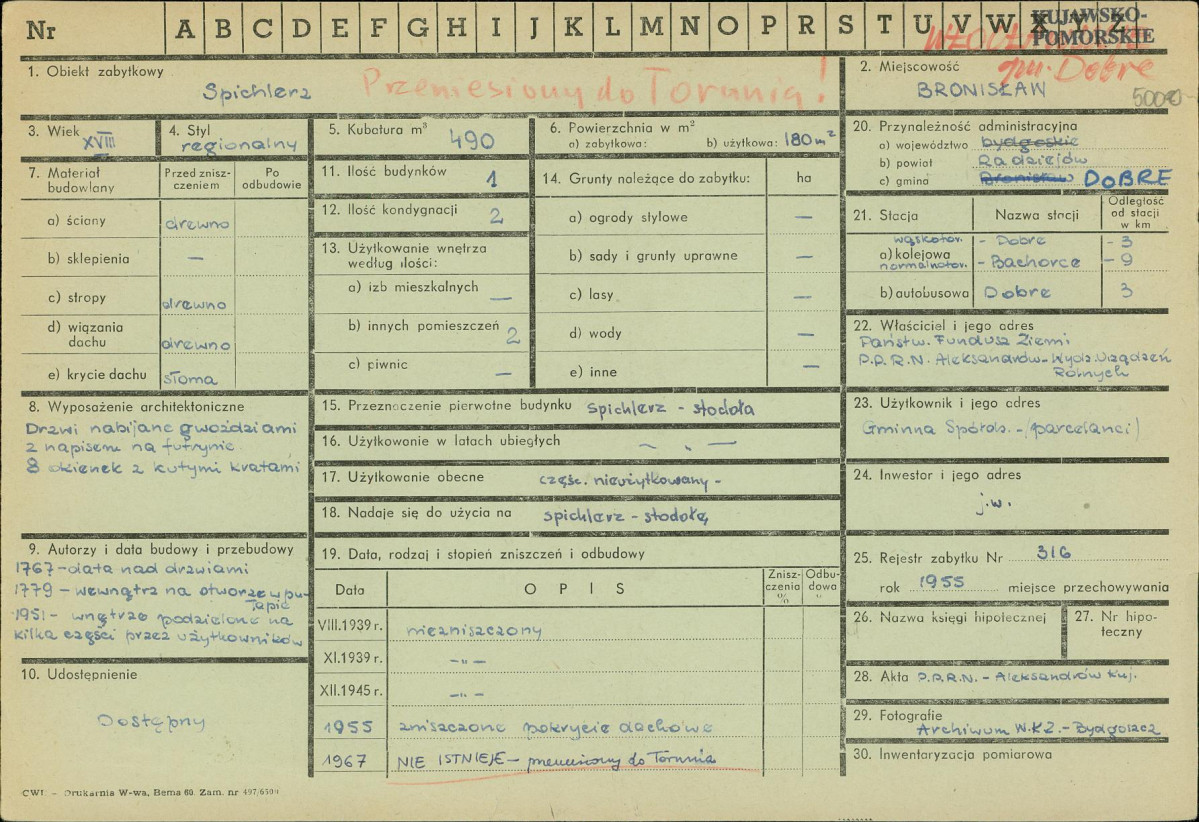 Nr A B C D E F G H I J K L M N O P R S T U V W X Y Z
KUJAWSKO-
POMORSKIE
gm. Dobre
1. Obiekt zabytkowy
Spichlerz Przeniesiony do Torunia!
2. Miejscowość
BRONISŁAW
50000
3. Wiek
XVIII
4. Styl
regionalny
5. Kubatura m³ 490
6. Powierzchnia w m²
a) zabytkowa: b) użytkowa: 180m²
7. Materiał
budowlany
Przed znisz-
czeniem
Po
odbudowie
a) ściany drewno
b) sklepienia —
c) stropy drewno
d) wiązania
dachu drewno
e) krycie dachu słoma
8. Wyposażenie architektoniczne
Drzwi nabijane gwoździami
z napisem na futrynie.
8 okienek z kutymi kratami
9. Autorzy i data budowy i przebudowy
1767 - data nad drzwiami
1779 - wewnątrz na otworze w pu-
łapie
1951 - wnętrze podzielone na
kilka części przez użytkowników
10. Udostępnienie
Dostępny
11. Ilość budynków 1
12. Ilość kondygnacji 2
13. Użytkowanie wnętrza
według ilości:
a) izb mieszkalnych —
b) innych pomieszczeń 2
c) piwnic —
14. Grunty należące do zabytku: ha
a) ogrody stylowe —
b) sady i grunty uprawne —
c) lasy —
d) wody —
e) inne —
15. Przeznaczenie pierwotne budynku spichlerz - stodoła
16. Użytkowonie w latach ubiegłych — „ —
17. Użytkowanie obecne częśc. nieużytkowany -
18. Nadaje się do użycia na spichlerz - stodołę
19. Data, rodzaj i stopień zniszczeń i odbudowy
Data O P I S
Znisz-
czenia
%
Odbu-
dowa
VIII.1939 r. niezniszczony
XI.1939 r. -„-
XII.1945 r. -„-
1955 zniszczone pokrycie dachowe
1967 NIE ISTNIEJE - przeniesiony do Torunia
20. Przynależność administracyjna
a) województwo bydgoskie
b) powiat Radziejów
c) gmina Bronisław DOBRE
21. Stacja Nazwa stacji
Odległość
od stacji
w km
wąskotor. - Dobre - 3
a) kolejowa
normalnotor. - Bachorce - 9
b) autobusowa Dobre 3
22. Właściciel i jego adres
Państw. Fundusz Ziemi
P.P.R.N. Aleksandrów - Wydz. Urządzeń
Rolnych
23. Użytkownik i jego adres
Gminna Spółdz. - (parcelanci)
24. Inwestor i jego adres
j.w.
25. Rejestr zabytku Nr 316
rok 1955 miejsce przechowywania
26. Nazwa księgi hipotecznej
27. Nr hipo-
teczny
28. Akta P.P.R.N. - Aleksandrów Kuj.
29. Fotografie
Archiwum W.K.Z. - Bydgoszcz
30. Inwentaryzacja pomiarowa
CWD - Drukarnia W-wa, Bema 60. Zam. nr 497/6500